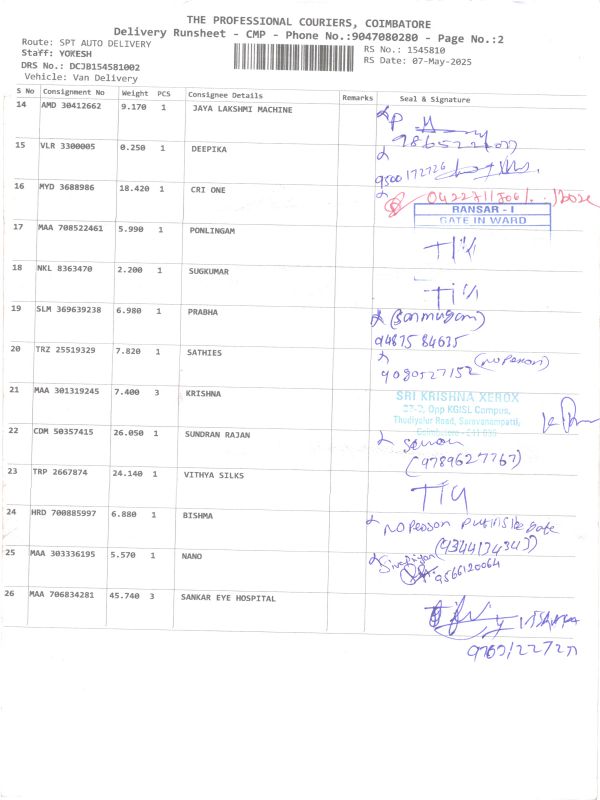 THE PROFESSIONAL COURIERS, COIMBATORE
Delivery Runsheet - CMP - Phone No.:9047080280 - Page No.:2
Route: SPT AUTO DELIVERY
RS No.: 1545810
Staff: YOKESH
RS Date: 07-May-2025
DRS No.: DCJB154581002
Vehicle: Van Delivery
S No Consignment No Weight PCS Consignee Details Remarks Seal & Signature
14 AMD 30412662 9.170 1 JAYA LAKSHMI MACHINE
15 VLR 3300005 0.250 1 DEEPIKA
9500172726
16 MYD 3688986 18.420 1 CRI ONE
RANSAR - I
GATE IN WARD
17 MAA 708522461 5.990 1 PONLINGAM
18 NKL 8363470 2.200 1 SUGKUMAR
19 SLM 369639238 6.980 1 PRABHA
(Sanmugam)
94875 84635
20 TRZ 25519329 7.820 1 SATHIES
(no Person)
9080527152
21 MAA 301319245 7.400 3 KRISHNA
SRI KRISHNA XEROX
27-2, Opp KGISL Campus,
Thudiyalur Road, Saravanampatti,
22 CDM 50357415 26.050 1 SUNDRAN RAJAN
(9789627767)
23 TRP 2667874 24.140 1 VITHYA SILKS
24 HRD 700885997 6.880 1 BISHMA
no Person
25 MAA 303336195 5.570 1 NANO
9566120064
26 MAA 706834281 45.740 3 SANKAR EYE HOSPITAL